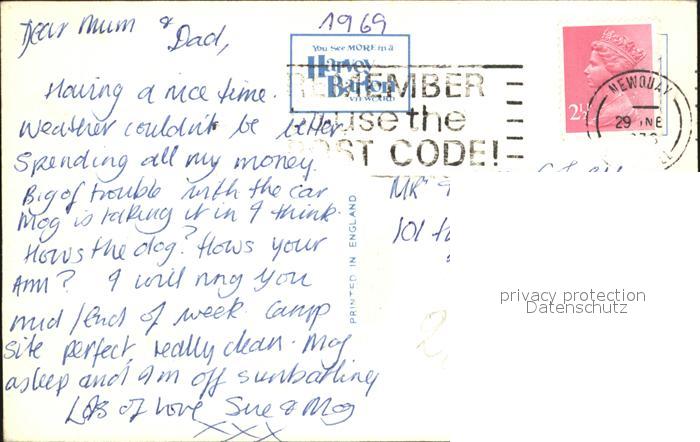 1969
Dear Mum &
Dad,
Having a nice time.
Weather couldn't be better
Spending all my money.
Big of trouble with the car
Mog is taking it in I think.
Hows the dog? Hows your
Arm? I will ring you
mid/End of week. Camp
site perfect, really clean. Mog
asleep and Im off sunbathing
Lots of love Sue & Mog
XXX
You See MORE in a
Harvey
Barton
VIEWCARD
REMEMBER
use the
POST CODE!
2½
NEWQUAY
29 JNE
PRINTED IN ENGLAND
MR &
101
privacy protection
Datenschutz